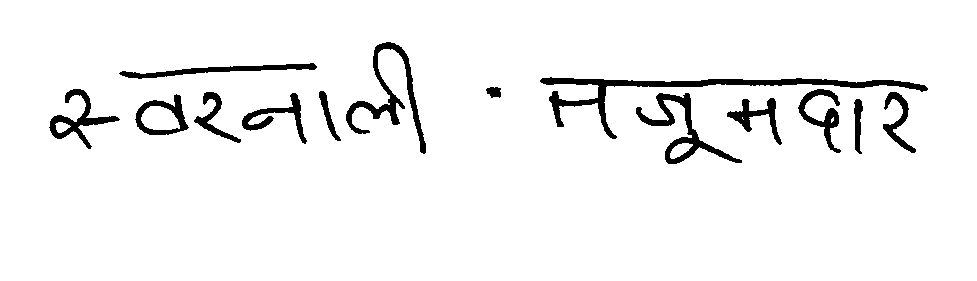 स्वरनाली . मजूमदार